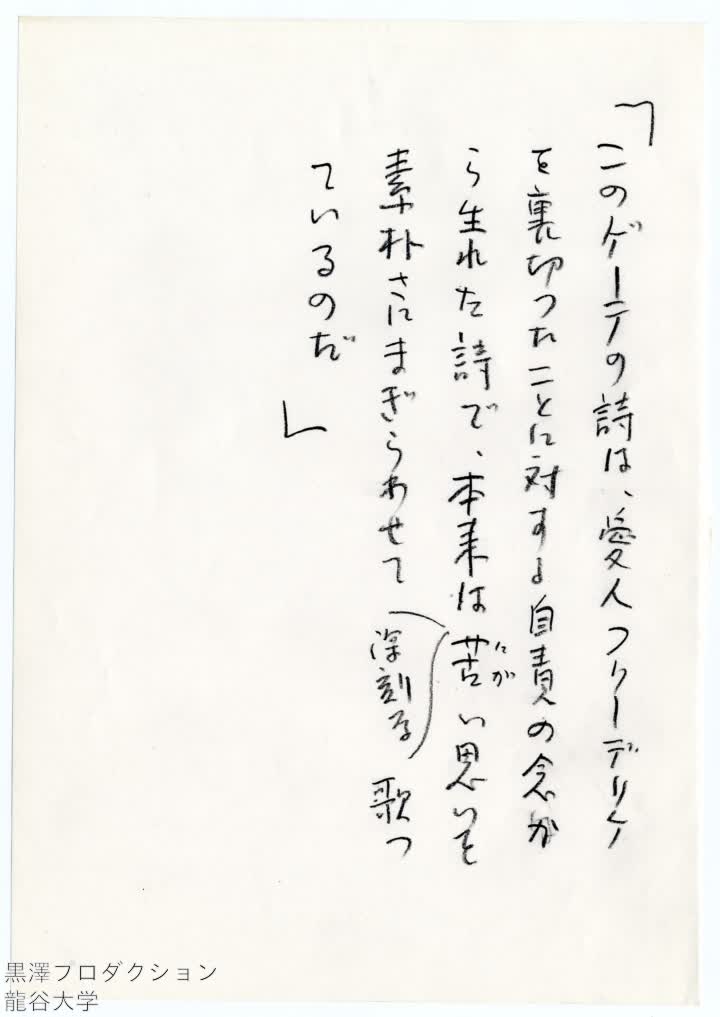 「このゲーテの詩は、愛人フリーデリケ
を裏切ったことに対する自責の念か
ら生れた詩で、本来は苦い思いを
にが
深刻な
素朴さにまぎらわせて歌っ
ているのだ」
黒澤プロダクション
龍谷大学